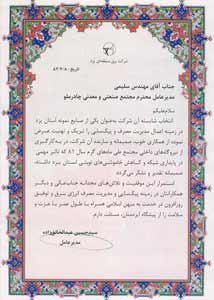 شرکت برق منطقه‌ای یزد
تاریخ: ۸۳/۲/۸
جناب آقای مهندس سلیمی
مدیرعامل محترم مجتمع صنعتی و معدنی چادرملو
سلام‌علیکم
انتخاب شایسته آن شرکت به‌عنوان یکی از صنایع نمونه استان یزد
در زمینه اعمال مدیریت مصرف و پیکسایی را تبریک و تهنیت عرض
نموده از همکاری خوب، صمیمانه و سازنده آن شرکت، در به‌کارگیری
از نیروگاه‌های داخلی مجتمع طی ماه‌های گرم سال ۸۱ که تاثیر مهمی
در پایداری شبکه و کاهش خاموشی‌های نوبتی استان یزد داشته،
صمیمانه تقدیر و تشکر می‌گردد.
استمرار این موفقیت و تلاش‌های مجدانه جناب‌عالی و دیگر
همکارانتان در زمینه پیکسایی و مدیریت مصرف انرژی برق و توفیق
روزافزون در خدمت به میهن اسلامی همراه با طول عمر با عزت و
سلامت را از پیشگاه ایزدمنان، مسئلت دارم.
سیدحسین عبدالخالق‌زاده
مدیرعامل